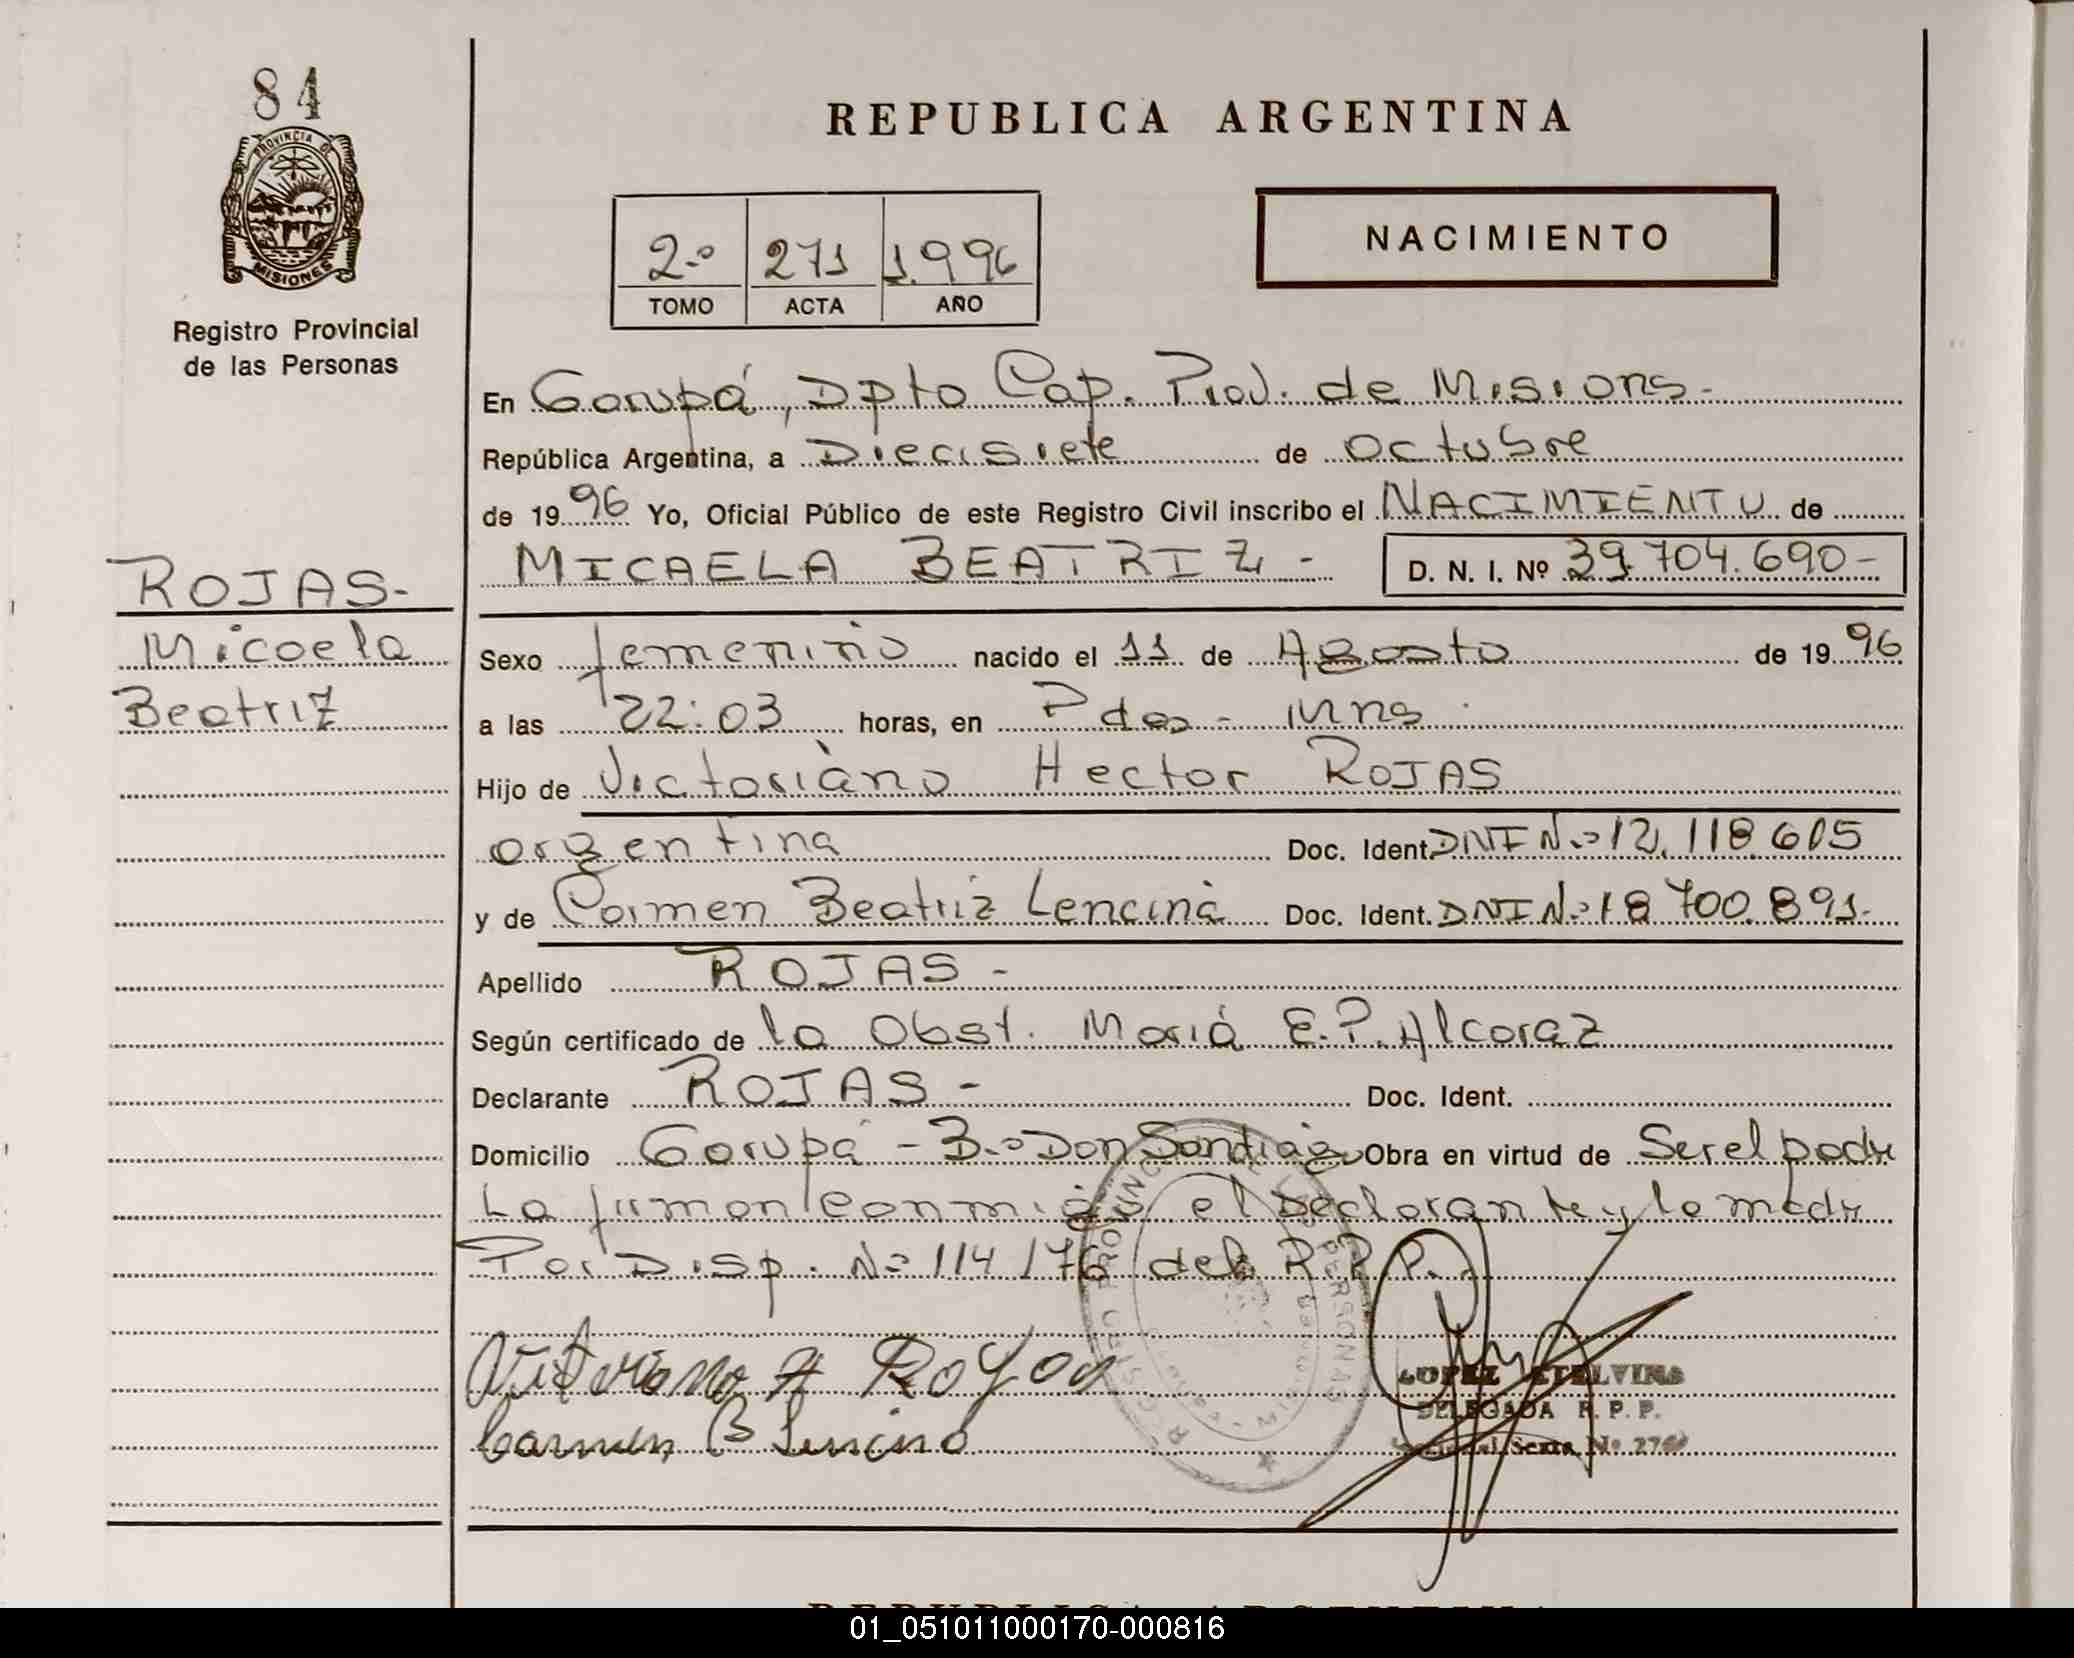 84
PROVINCIA DE
MISIONES
Registro Provincial
de las Personas
REPUBLICA ARGENTINA
2º 271 1.996
TOMO ACTA AÑO
NACIMIENTO
En Garupá, Dpto Cap. Prov. de Misions-
República Argentina, a Diecisiete de octubre
de 1996 Yo, Oficial Público de este Registro Civil inscribo el NACIMIENTO de
MICAELA BEATRIZ - D. N. I. Nº 39.704.690-
ROJAS-
Micaela
Beatriz
Sexo femenino nacido el 11 de Agosto de 1996
a las 22:03 horas, en Pdas - Mns
Hijo de Victoriano Hector ROJAS
argentina Doc. Ident. DNI Nº 12.118.605
y de Carmen Beatriz Lencina Doc. Ident. DNI Nº 18 700.891-
Apellido ROJAS -
Según certificado de la Obst. Maria E.P. Alcaraz
Declarante ROJAS - Doc. Ident.
Domicilio Garupá - Bº Don Santiago Obra en virtud de Ser el padre
La firman conmigo el Declarante y la madre
Por Disp. Nº 114/76 del R.P.P.
Victoriano H Rojas
Carmen B Lencina
REGISTRO PROVINCIAL PERSONAS
LOPEZ ETELVINA
DELEGADA R. P. P.
REPUBLICA ARGENTINA
01_051011000170-000816